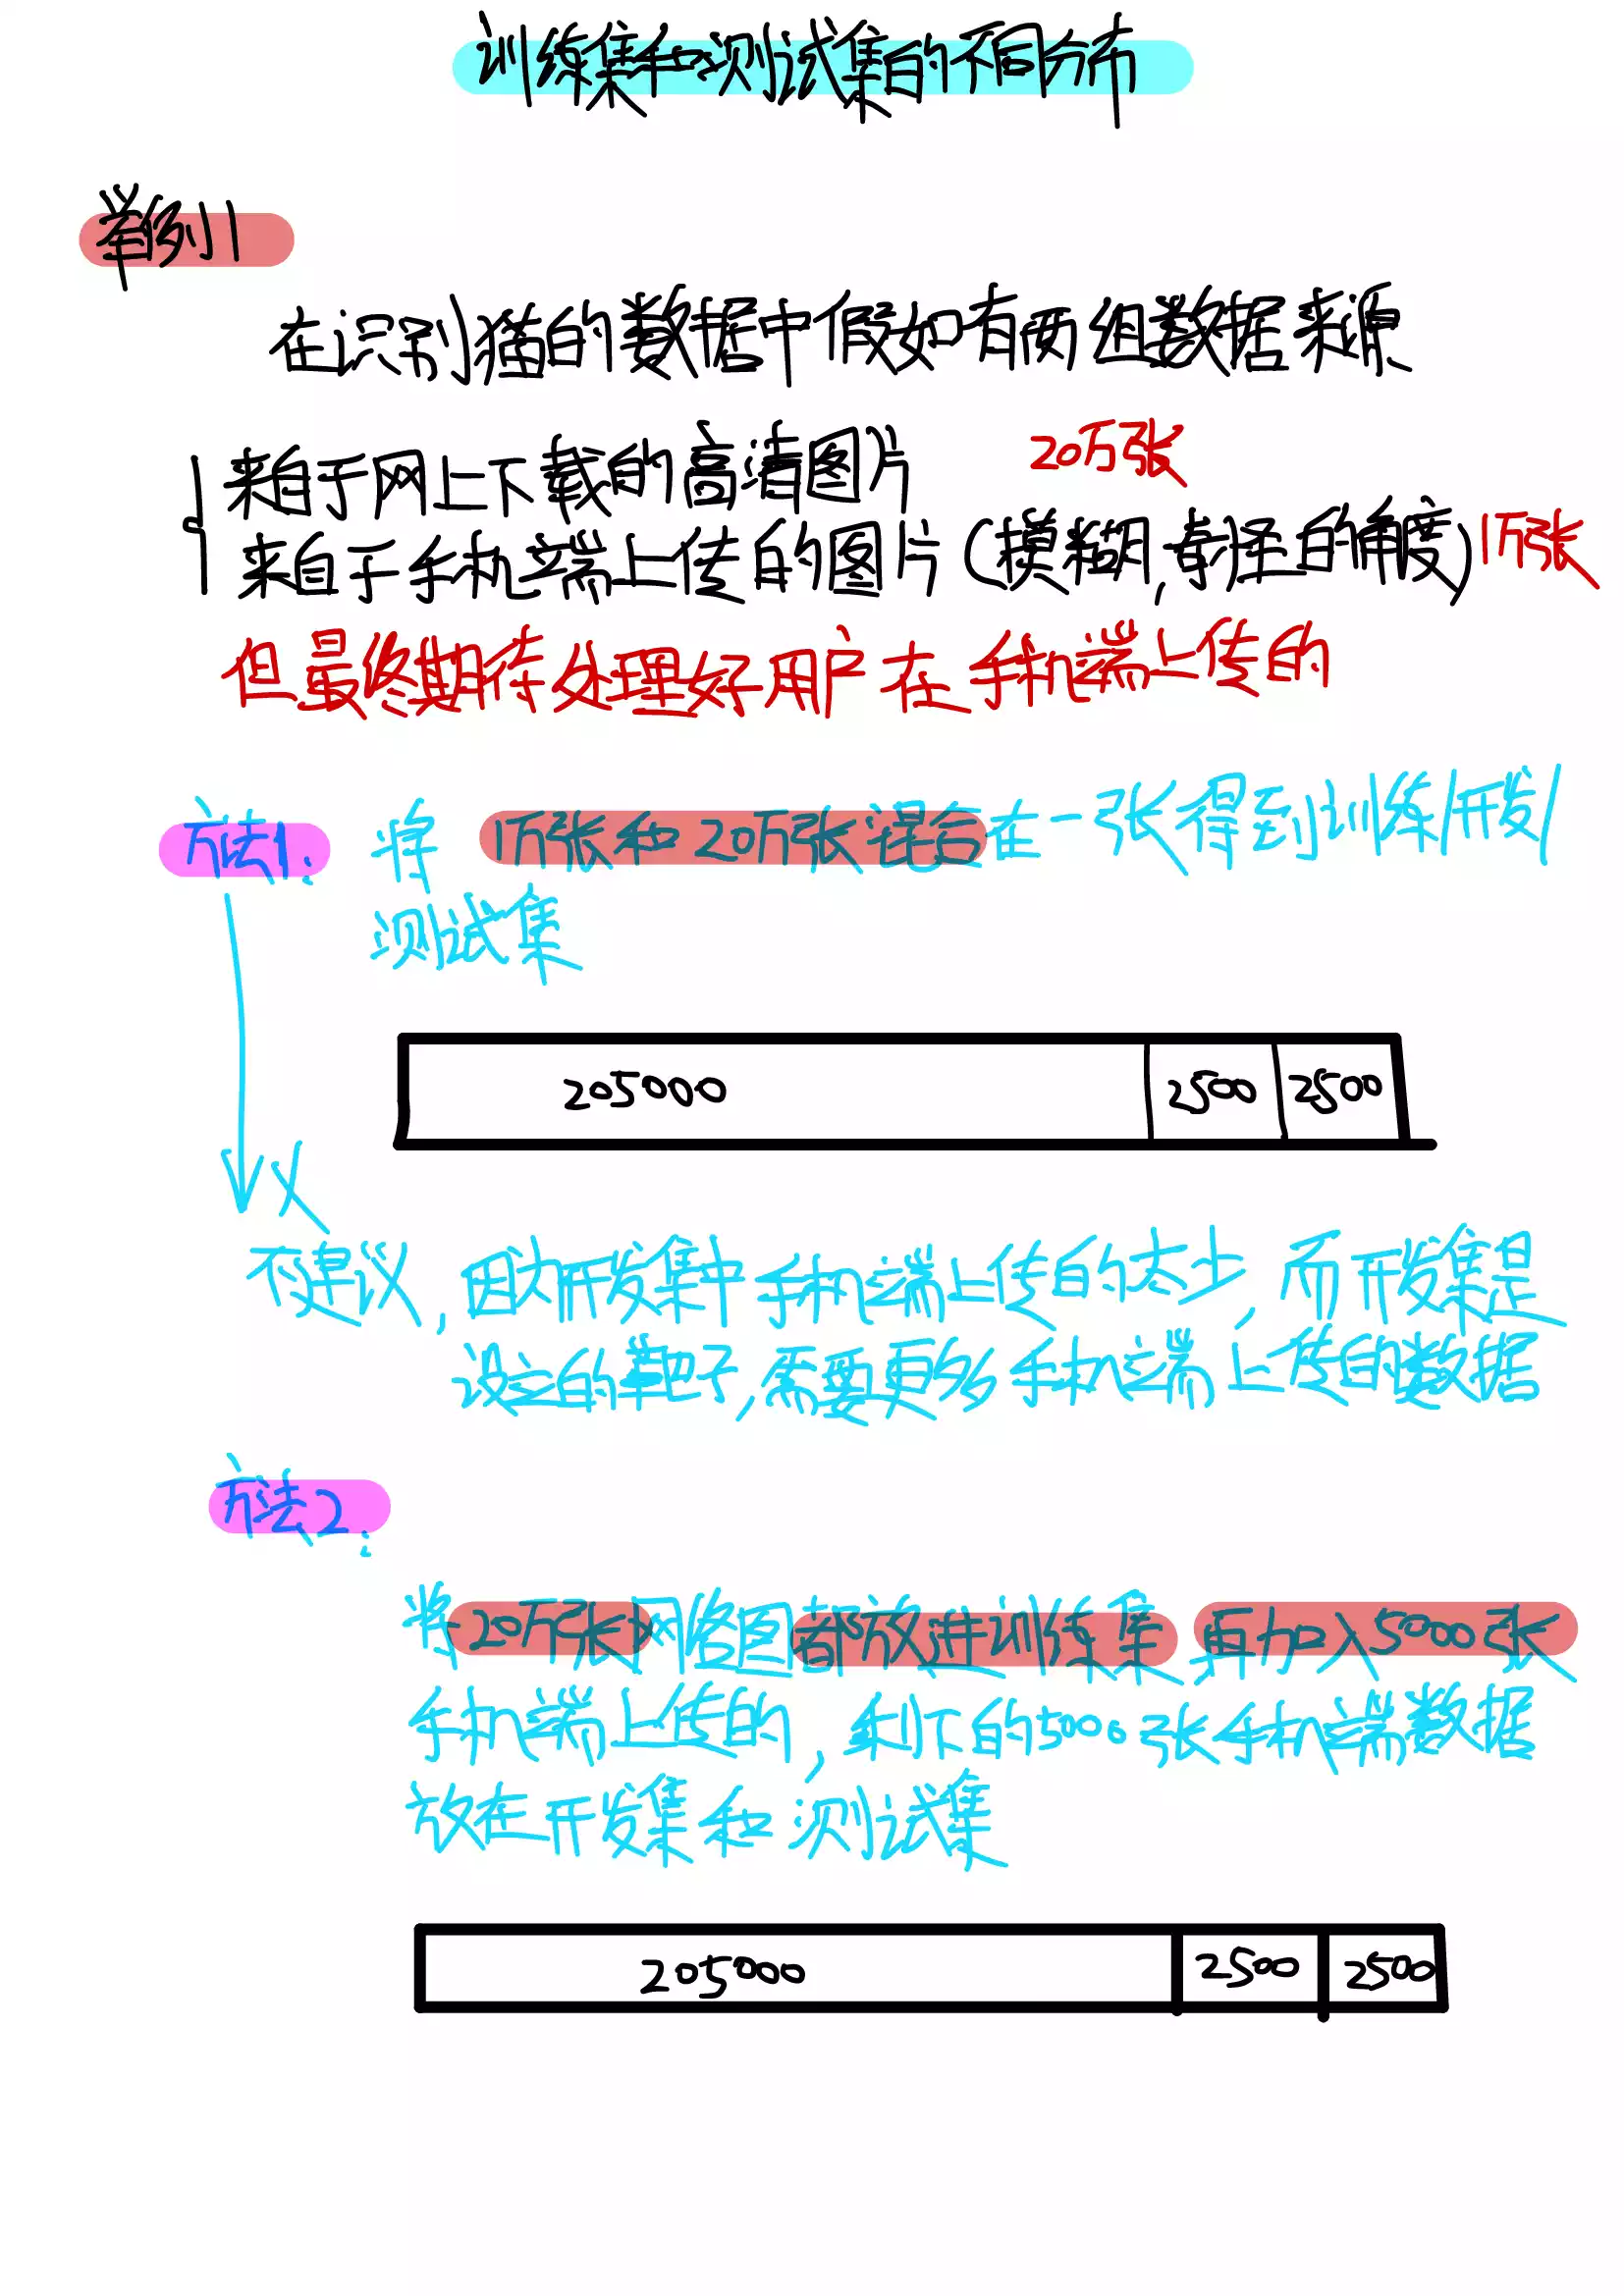 训练集和测试集的不同分布
举例1
在识别猫的数据中假如有两组数据来源
来自于网上下载的高清图片 20万张
来自于手机端上传的图片(模糊,奇怪的角度) 1万张
但最终期待处理好用户在手机端上传的
方法1: 将1万张和20万张混合在一张得到训练/开发/
测试集
205000 2500 2500
不建议,因为开发集中手机端上传的太少,而开发集是
设立的靶子,需要更多手机端上传的数据
方法2:
将20万张网络图都放进训练集 再加入5000张
手机端上传的,剩下的5000张手机端数据
放在开发集和测试集
205000 2500 2500